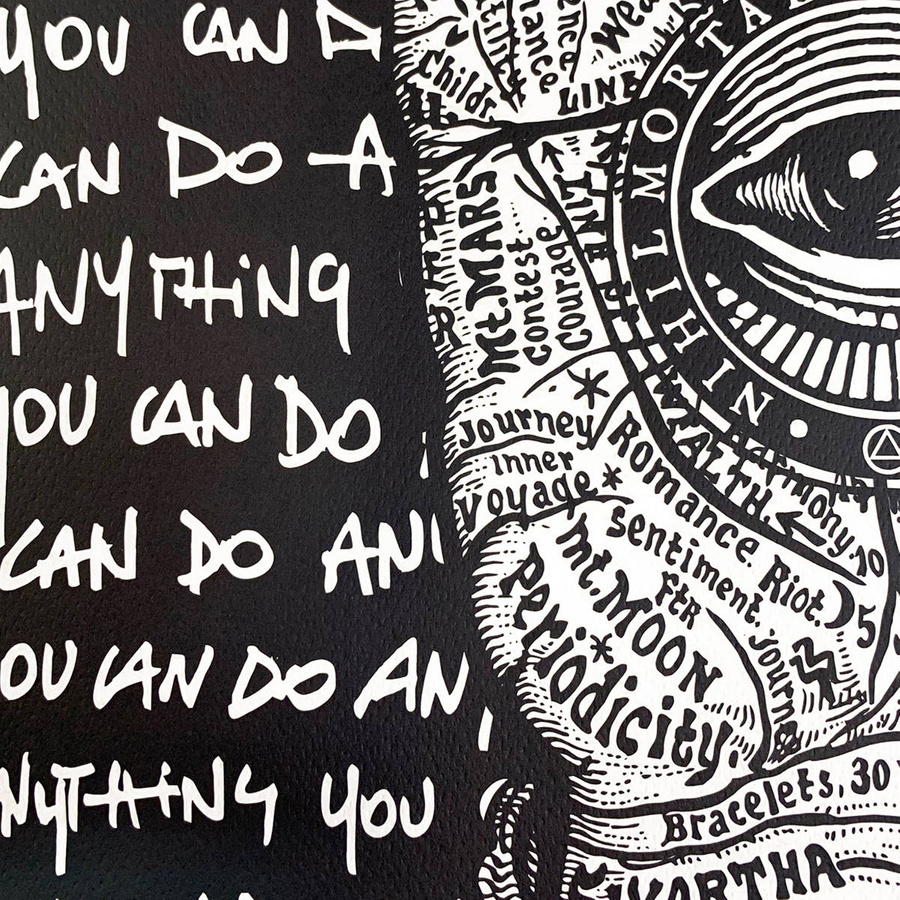 YOU CAN D
CAN DO A
ANYTHING
YOU CAN DO
CAN DO ANY
YOU CAN DO AN
ANYTHING YOU
Childr
LINE
MORTA
Mt. MARS
Contest
Courage
HIN
Journey
inner
Voyage
Romance Riot.
WEALTH.
Harmony.
10
sentiment.
5
mt. MOON
FtR
Journey
Periodicity.
Bracelets, 30
KARTHA